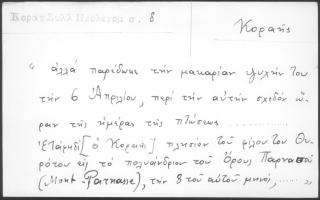 Κοραῆς
" ἀλλά παρέδωκε τήν μακαρίαν ψυχήν του
τήν 6 Ἀπριλίου, περί τήν αὐτήν σχεδόν ὥ-
ραν τῆς ἡμέρας τῆς πτώσεως ............
ἐτάφη δέ [ὁ Κοραῆς] πλησίον τοῦ φίλου του Θυ-
ρότου εἰς τό πολυάνδριον τοῦ Ὄρους Παρνασσοῦ
(Mont-Parnasse), τήν 8 τοῦ αὐτοῦ μηνός, ....... "